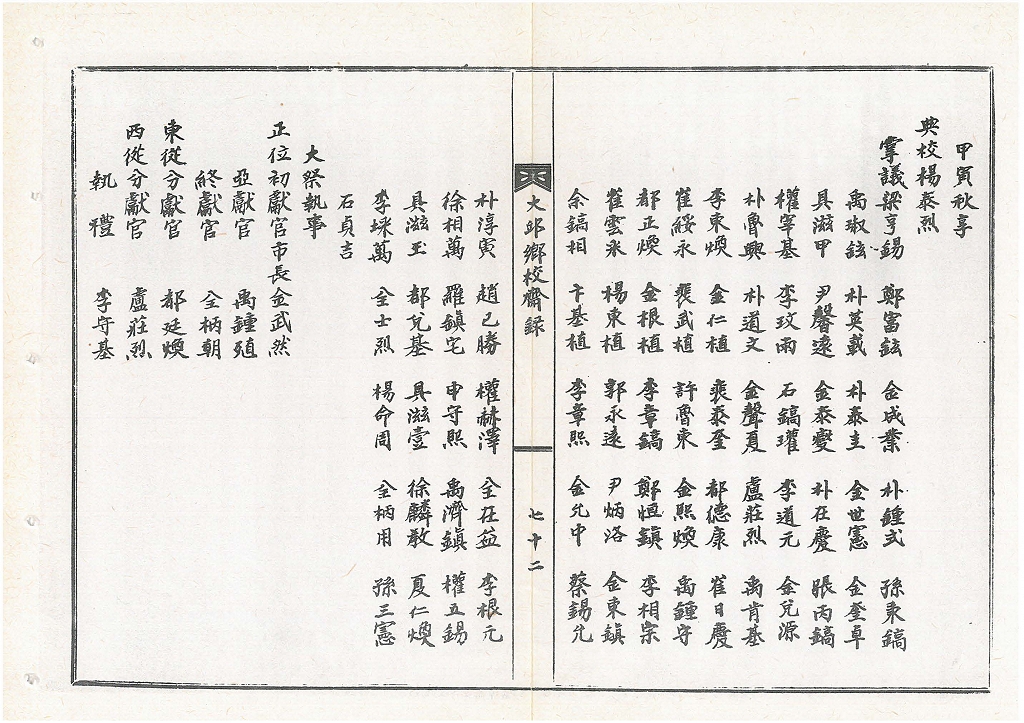 甲寅秋享
典校楊泰烈
掌議梁亨錫 鄭富鉉 金成業 朴鍾式 孫秉鎬
禹琡鉉 朴英載 朴泰主 金世憲 金奎卓
具滋甲 尹馨遠 金泰燮 朴在慶 張丙鎬
權宰基 李玟雨 石鎬瓘 李道元 金兌源
朴魯興 朴道文 金聲夏 盧莊烈 禹肯基
李東煥 金仁植 裵泰奎 都德康 崔日慶
崔綏永 裵武植 許魯東 金熙煥 禹鍾守
都正煥 金根植 李章鎬 鄭恒鎮 李相宗
崔雲永 楊東植 郭永遠 尹炳洛 金東鎮
余鎬相 卞基植 李章熙 金允中 蔡錫允
大邱鄉校齋録
七十二
朴淳寅 趙已勝 權赫澤 全在益 李根元
徐相萬 羅鎮宅 申守熙 禹濟鎮 權五錫
具滋玉 都兌基 具滋壹 徐麟敎 夏仁煥
李埰萬 全士烈 楊命周 全柄用 孫三憲
石貞吉
大祭執事
正位初獻官市長金武然
亞獻官 禹鍾殖
終獻官 全柄朝
東從分獻官 都廷煥
西從分獻官 盧莊烈
執禮 李守基